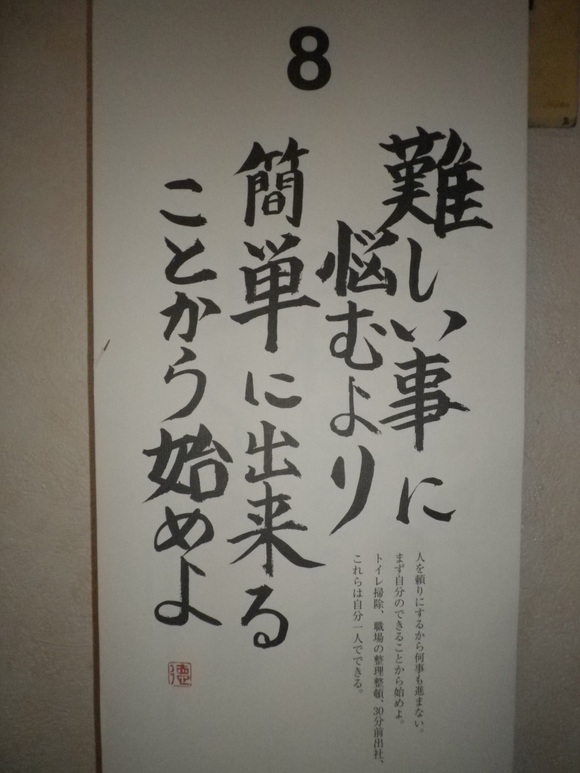 8
難しい事に
悩むより
簡単に出来る
ことから始めよ
人を頼りにするから何事も進まない。
まず自分のできることから始めよ。
トイレ掃除、職場の整理整頓、30分前出社、
これらは自分一人でできる。